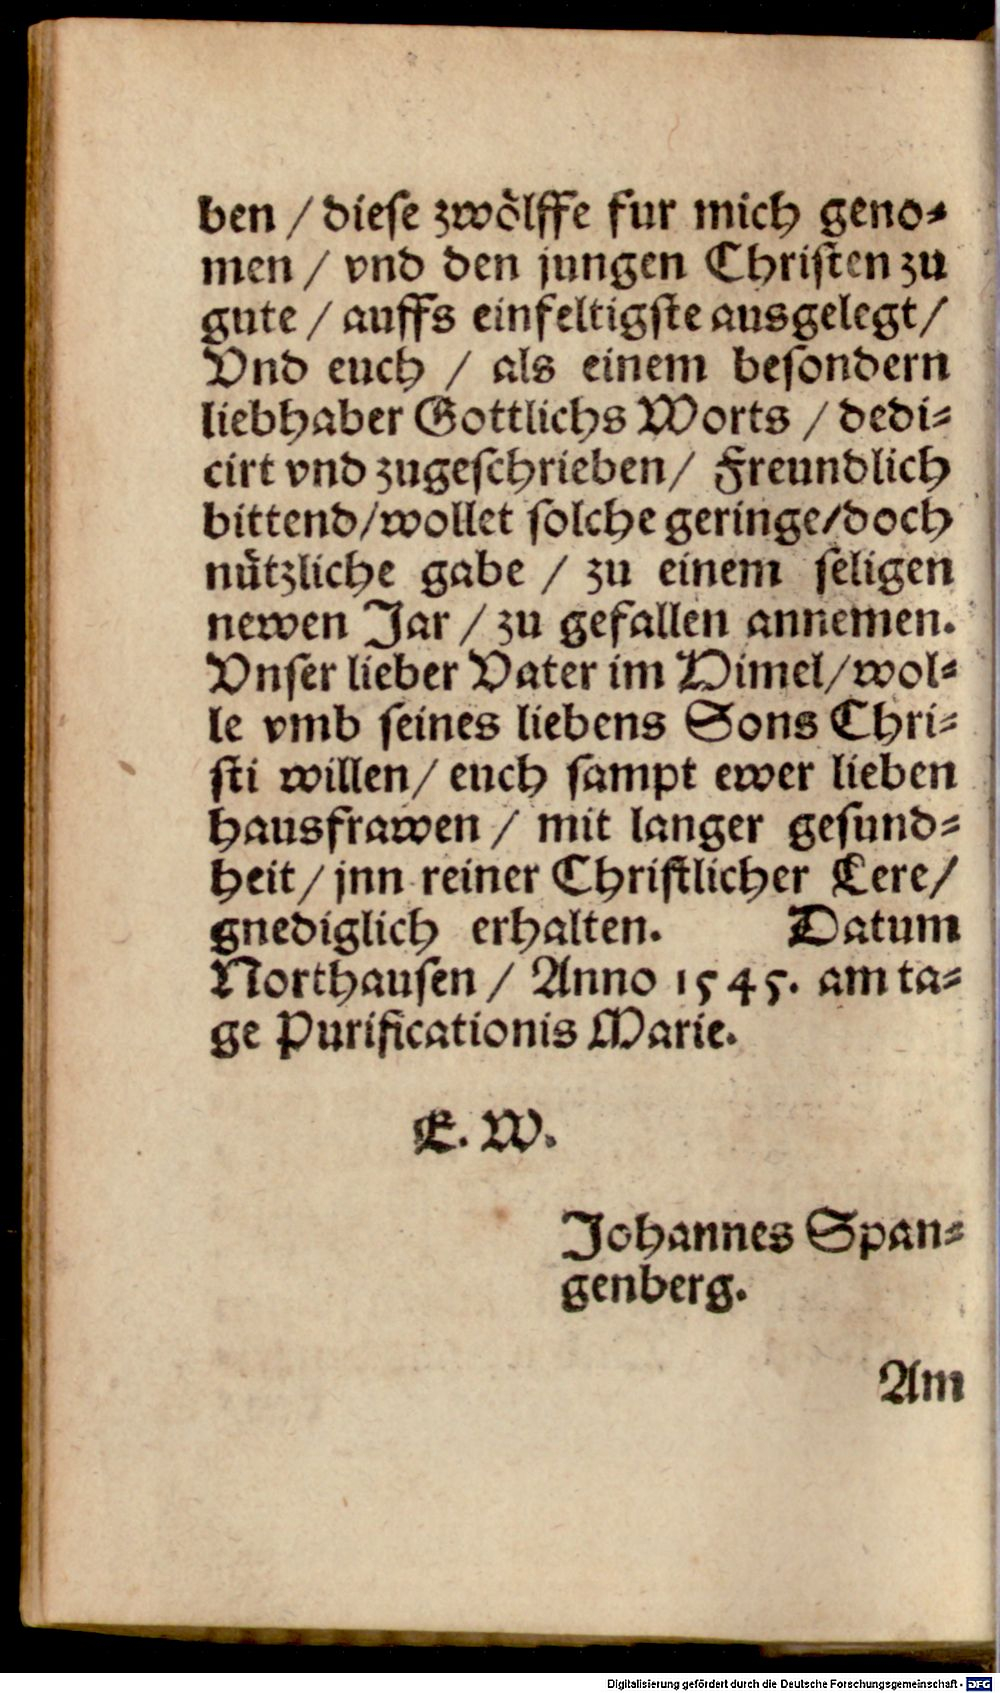 ben / diese zwoͤlffe fur mich geno⸗
men / vnd den jungen Christen zu
gute / auffs einfeltigste ausgelegt /
Vnd euch / als einem besondern
liebhaber Gottlichs Worts / dedi⸗
cirt vnd zugeschrieben / Freundlich
bittend / wollet solche geringe / doch
nuͤtzliche gabe / zu einem seligen
newen Jar / zu gefallen annemen.
Vnser lieber Vater im Himel / wol⸗
le vmb seines liebens Sons Chri⸗
sti willen / euch sampt ewer lieben
hausfrawen / mit langer gesund⸗
heit / jnn reiner Christlicher Lere /
gnediglich erhalten. Datum
Northausen / Anno 1545. am ta⸗
ge Purificationis Marie.
E. W.
Johannes Span⸗
genberg.
Am
Digitalisierung gefördert durch die Deutsche Forschungsgemeinschaft - DFG